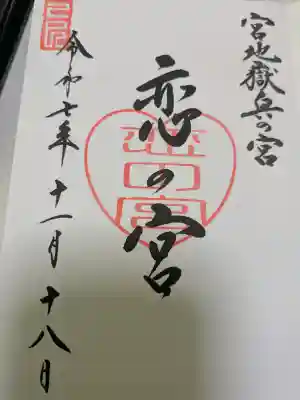 宮地嶽兵の宮
恋の宮
恋の宮
令和七年十一月十八日